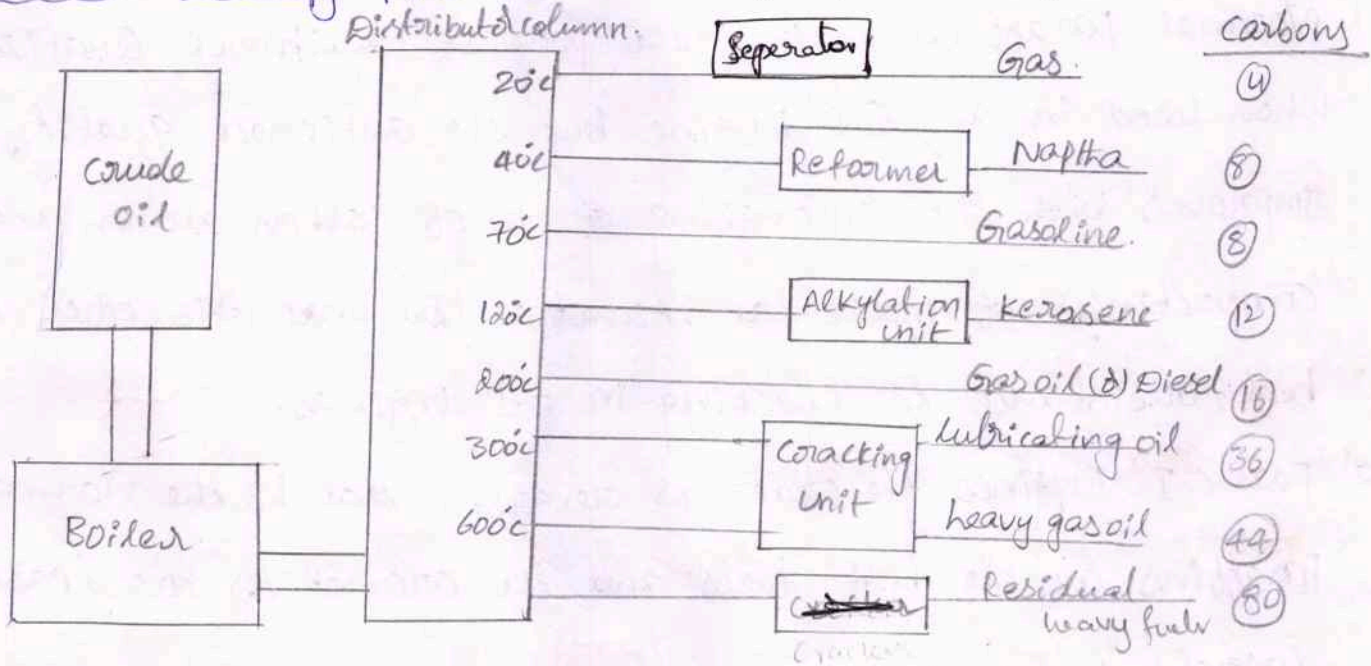 Distributor column.
Seperator
Gas.
Carbons
20°C
4
crude
oil
40°C
Reformer
Naptha
8
70°C
Gasoline.
8
120°C
Alkylation
unit
kerosene
12
200°C
Gas oil (or) Diesel
16
300°C
Cracking
unit
lubricating oil
36
Boiler
600°C
heavy gas oil
44
Residual
heavy fuels
80